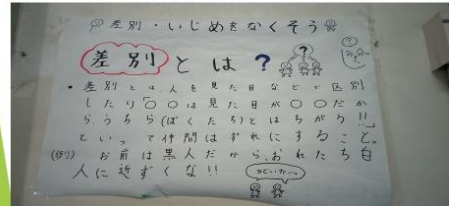 差別・いじめをなくそう
差別とは?
・差別とは人を見た目などで区別
したり「〇〇は見た目が〇〇だか
らうちら(ぼくたち)とはちがう!!」
といって仲間はずれにすること。
(例)お前は黒人だから、おれたち白
人に近ずくな!!
ひどいなー。